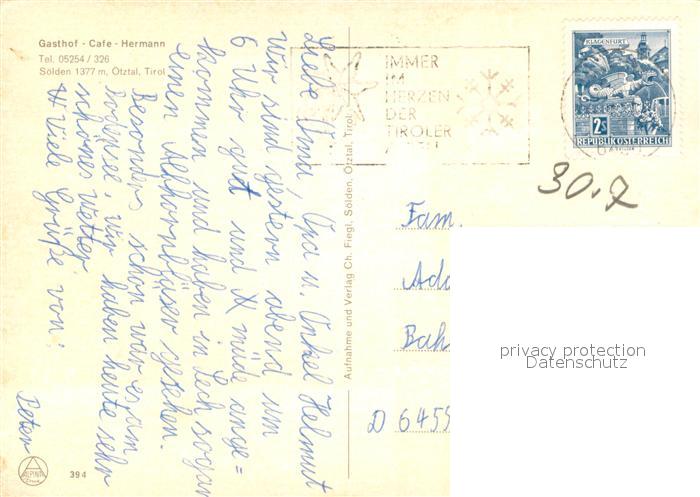 Gasthof - Cafe - Hermann
Tel. 05254 / 326
Sölden 1377 m, Ötztal, Tirol
Liebe Oma, Opa u. Onkel Helmut
wir sind gestern abend um
6 Uhr gut und müde ange=
kommen und haben in Lech sogar
einen Alphornbläser gesehen.
Besonders schön war es am
wir haben heute sehr
schönes Wetter
Viele Grüße von:
Peter
ALPINA
394
Aufnahme und Verlag Ch. Fiegl, Sölden, Ötztal, Tirol
IMMER
IM
HERZEN
DER
TIROLER
KLAGENFURT
2 S
REPUBLIK ÖSTERREICH
30.7
Fam.
Ado
Bah
D 6455
privacy protection
Datenschutz